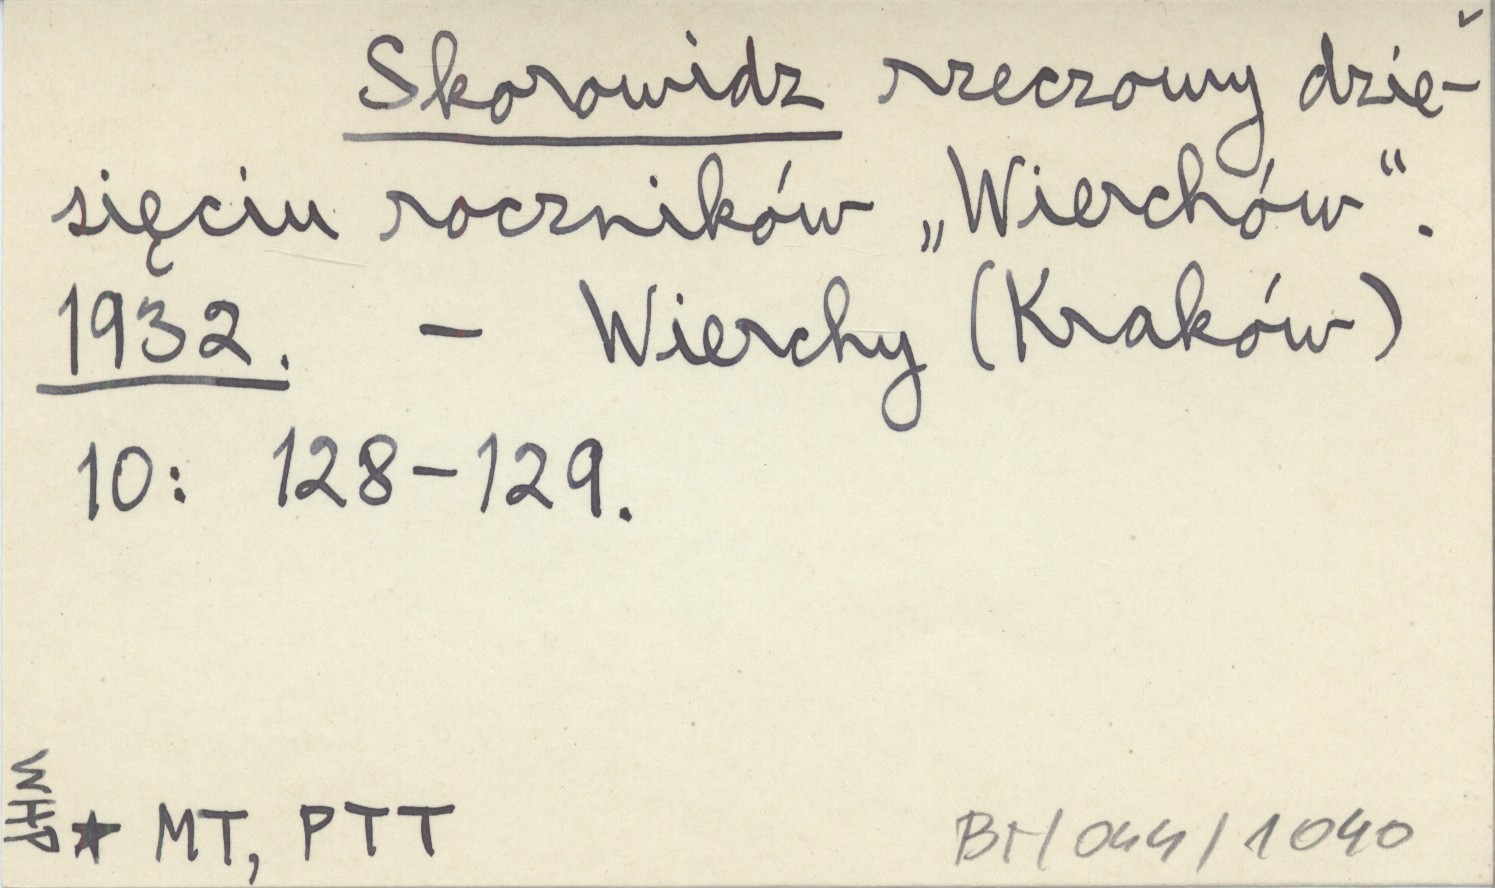 Skorowidz rzeczowy dzie-
sięciu roczników „Wierchów“.
1932. – Wierchy (Kraków)
10: 128–129.
WHP
★ MT, PTT
BM/044/1040